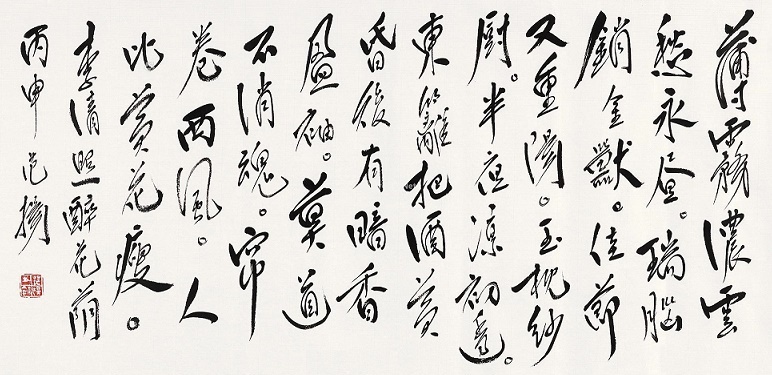 薄霧濃雲
愁永昼。瑞腦
銷金獸。佳節
又重陽。玉枕紗
厨。半夜涼初透。
東籬把酒黄
昏後有暗香
盈袖。莫道
不消魂。帘
卷西風。人
比黄花瘦。
李清照醉花荫
丙申 范揚